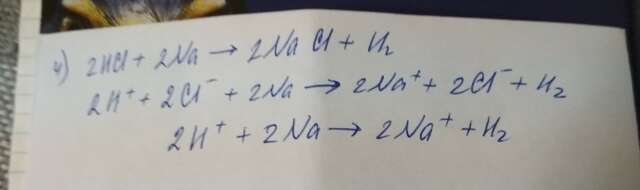 4) 2HCl + 2Na → 2NaCl + H₂
2H⁺ + 2Cl⁻ + 2Na → 2Na⁺ + 2Cl⁻ + H₂
2H⁺ + 2Na → 2Na⁺ + H₂